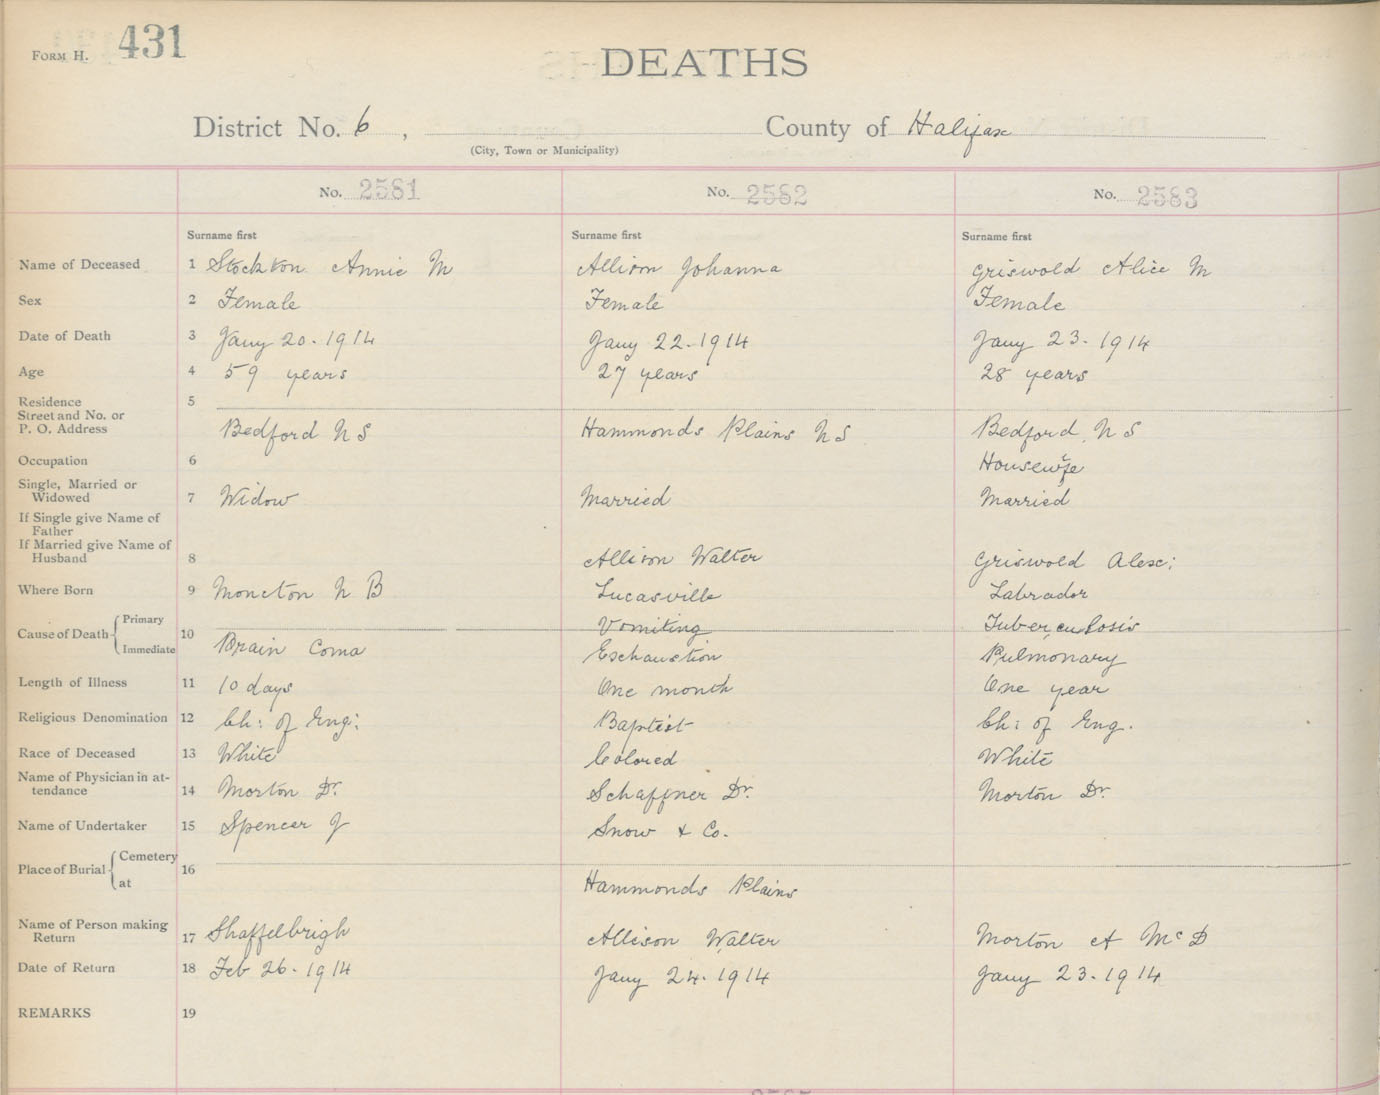 FORM H. 431
DEATHS
District No. 6 , County of Halifax
(City, Town or Municipality)
No. 2581 No. 2582 No. 2583
Surname first Surname first Surname first
Name of Deceased 1 Stockton Annie M Allison Johanna Griswold Alice M
Sex 2 Female Female Female
Date of Death 3 Jany 20-1914 Jany 22-1914 Jany 23-1914
Age 4 59 years 27 years 28 years
Residence 5
Street and No. or
P. O. Address Bedford N S Hammonds Plains N S Bedford N S
Occupation 6 Housewife
Single, Married or
Widowed 7 Widow Married Married
If Single give Name of
Father
If Married give Name of
Husband 8 Allison Walter Griswold Alex:
Where Born 9 Moncton N B Lucasville Labrador
Cause of Death Primary 10 Vomiting Tuberculosis
Immediate Brain Coma Exhaustion Pulmonary
Length of Illness 11 10 days One month One year
Religious Denomination 12 Ch: of Eng: Baptist Ch: of Eng.
Race of Deceased 13 White Colored White
Name of Physician in at-
tendance 14 Morton Dr. Schaffner Dr. Morton Dr.
Name of Undertaker 15 Spencer J Snow & Co.
Place of Burial Cemetery 16
at Hammonds Plains
Name of Person making
Return 17 Allison Walter Morton A McD
Date of Return 18 Feb 26-1914 Jany 24-1914 Jany 23-1914
REMARKS 19